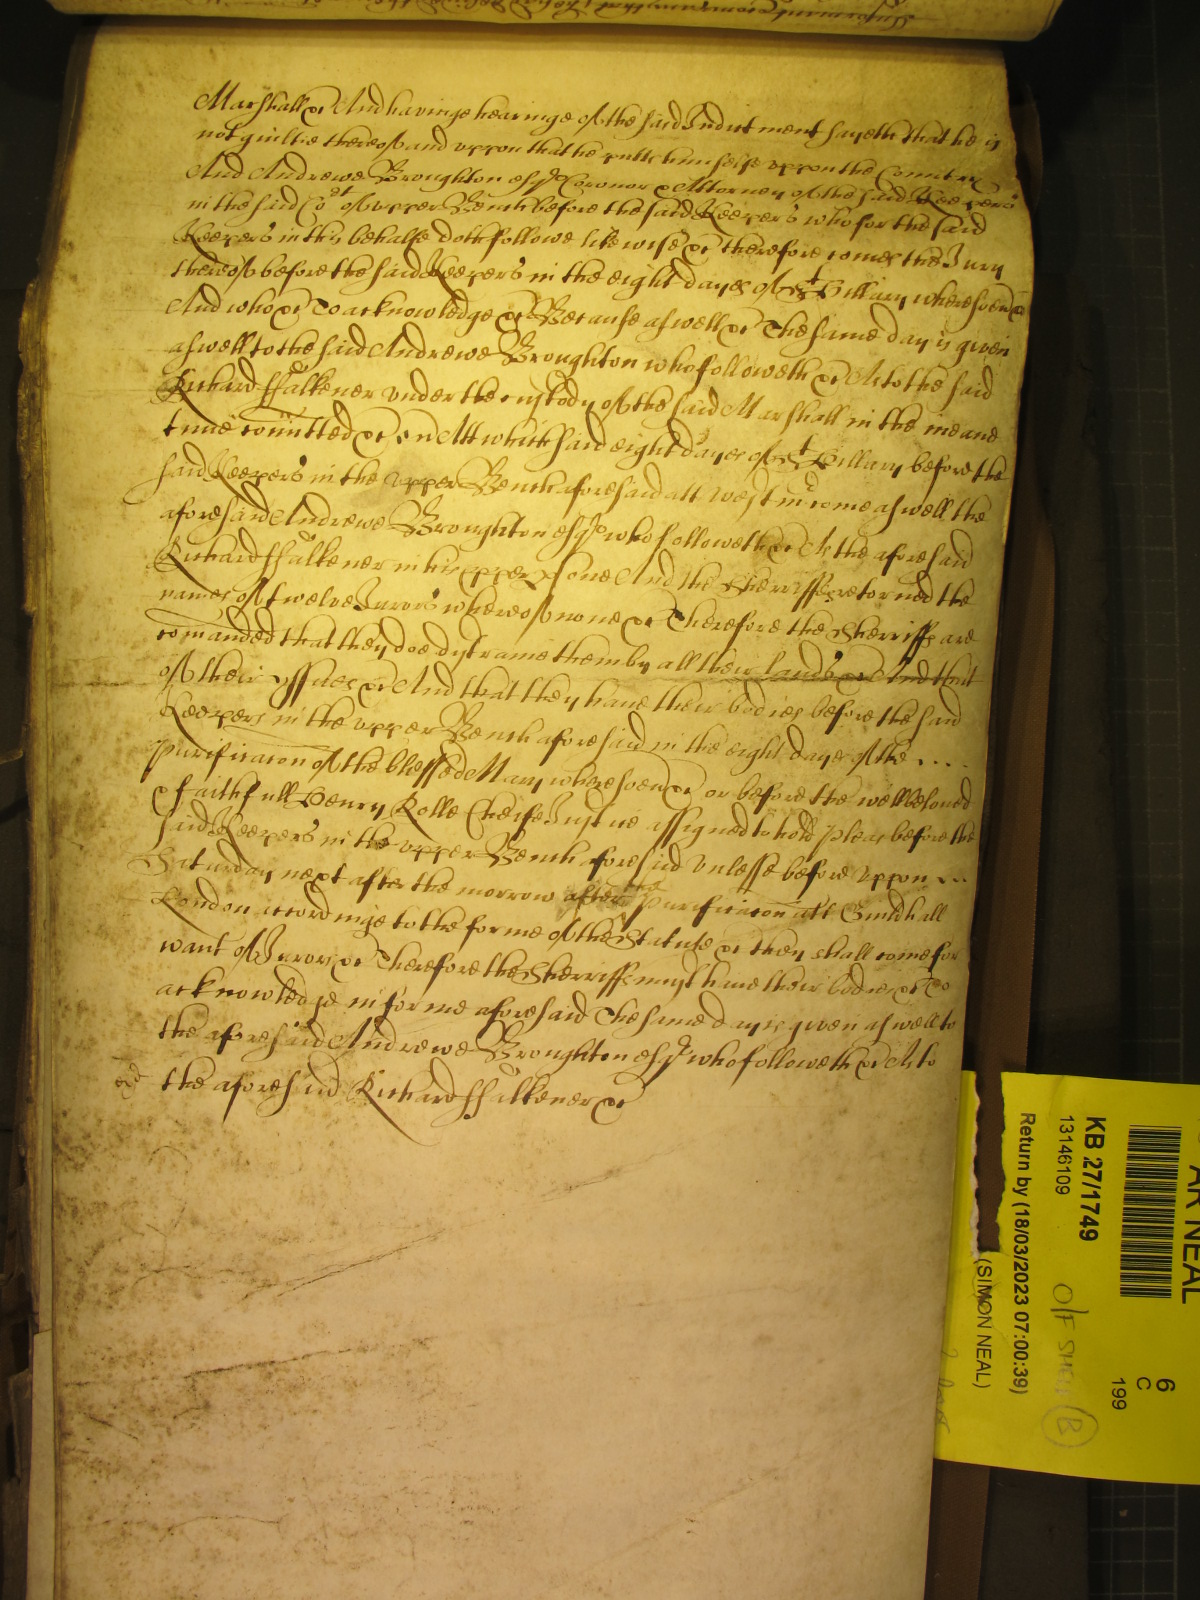 Marshall &c And havinge hearinge of the said Indictment sayeth that he is
not guiltie thereof and uppon that he putts himselfe uppon the Countrey
And Andrewe Broughton esqr Coronor & Attorney of the said Keepers
in the said Cort of upper Bench before the said Keepers who for the said
Keepers in this behalfe doth followe likewise &c therefore comes the Jury
thereof before the said Keepers in the eight dayes of St Hillary wheresoever &c
And who &c To acknowledge &c Because aswell &c The same day is given
aswell to the said Andrewe Broughton who followeth &c As to the said
Richard ffalkener under the custody of the said Marshall in the meane
time comitted &c Att which said eight dayes of St Hillary before the
said Keepers in the upper Bench aforesaid att Westm come aswell the
aforesaid Andrewe Broughton esqr who followeth &c As the aforesaid
Richard ffalkener in his pper psone And the Sherriffs retorned the
names of twelve Jurors whereof none &c Therefore the Sherriffs are
comanded that they doe distraine them by all their lands &c And that
of their yssues &c And that they have their bodies before the said
Keepers in the upper Bench aforesaid in the eight daye of the ....
Purificacon of the blessed Mary wheresoever &c or before the welbeloved
& faithfull Henry Rolle Cheife Justice assigned to hold pleas before the
said Keepers in the upper Bench aforesaid unlesse before uppon ...
Saturday next after the morrow after the Purificacon att Guildhall
London accordinge to the forme of the Statute &c they shall come for
want of Jurors &c Therefore the Sherriffs must have their bodies &c To
acknowledge in forme aforesaid The same day is given aswell to
the aforesaid Andrewe Broughton esqr who followeth &c As to
the aforesaid Richard ffalkener &c
AR NEAL
KB 27/1749
13146109
Return by (18/03/2023 07:00:39)
(SIMON NEAL)
6
C
199
B